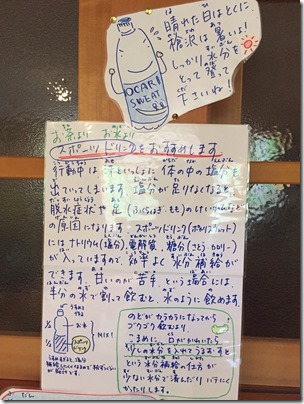 晴れた日はとくに
沢は暑いよ!
しっかり水分を
とって登って
下さいね!
OCARI
SWEAT
お茶より お水より
スポーツドリンクをおすすめします。
行動中は汗といっしょに体の中の塩分も
出ていってしまいます。塩分が足りなくなると
脱水症状や足(ふくらはぎ・もも)のけいれん
の原因になります。スポーツドリンク(ポカリスエット)
にはナトリウム(塩分)、電解質、糖分(さとう・カロリー)
が入っていますので、効率よく水分補給が
できます。甘いのが苦手という場合には
半分の水で割って飲むと、水のように飲めます。
MIX!
スポーツ
ドリンク
のどがカラカラになってから
ゴクゴク飲むより、
こまめに、口がかわいたら
少しの水分を入れてうるおすと
という水分補給の仕方が
少ない水分で済んだり バテにく
かったりします。